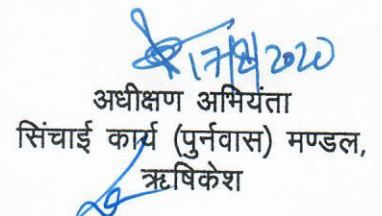 17/8/2020
अधीक्षण अभियंता
सिंचाई कार्य (पुर्नवास) मण्डल,
ऋषिकेश